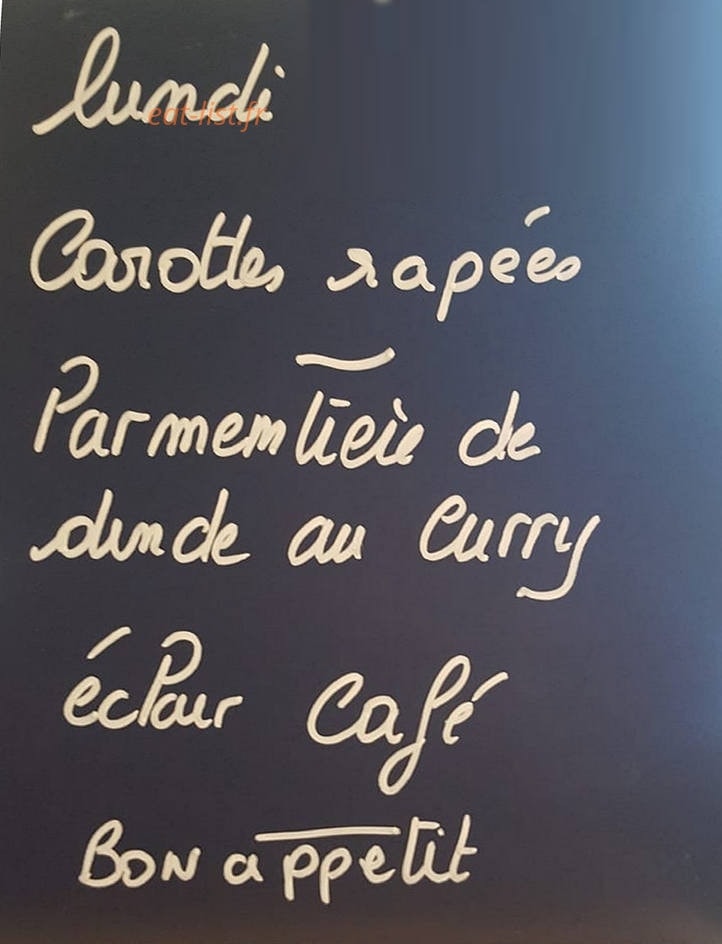 lundi
eat-list.fr
Carottes rapées
Parmentier de
dinde au curry
éclair Café
BON appetit